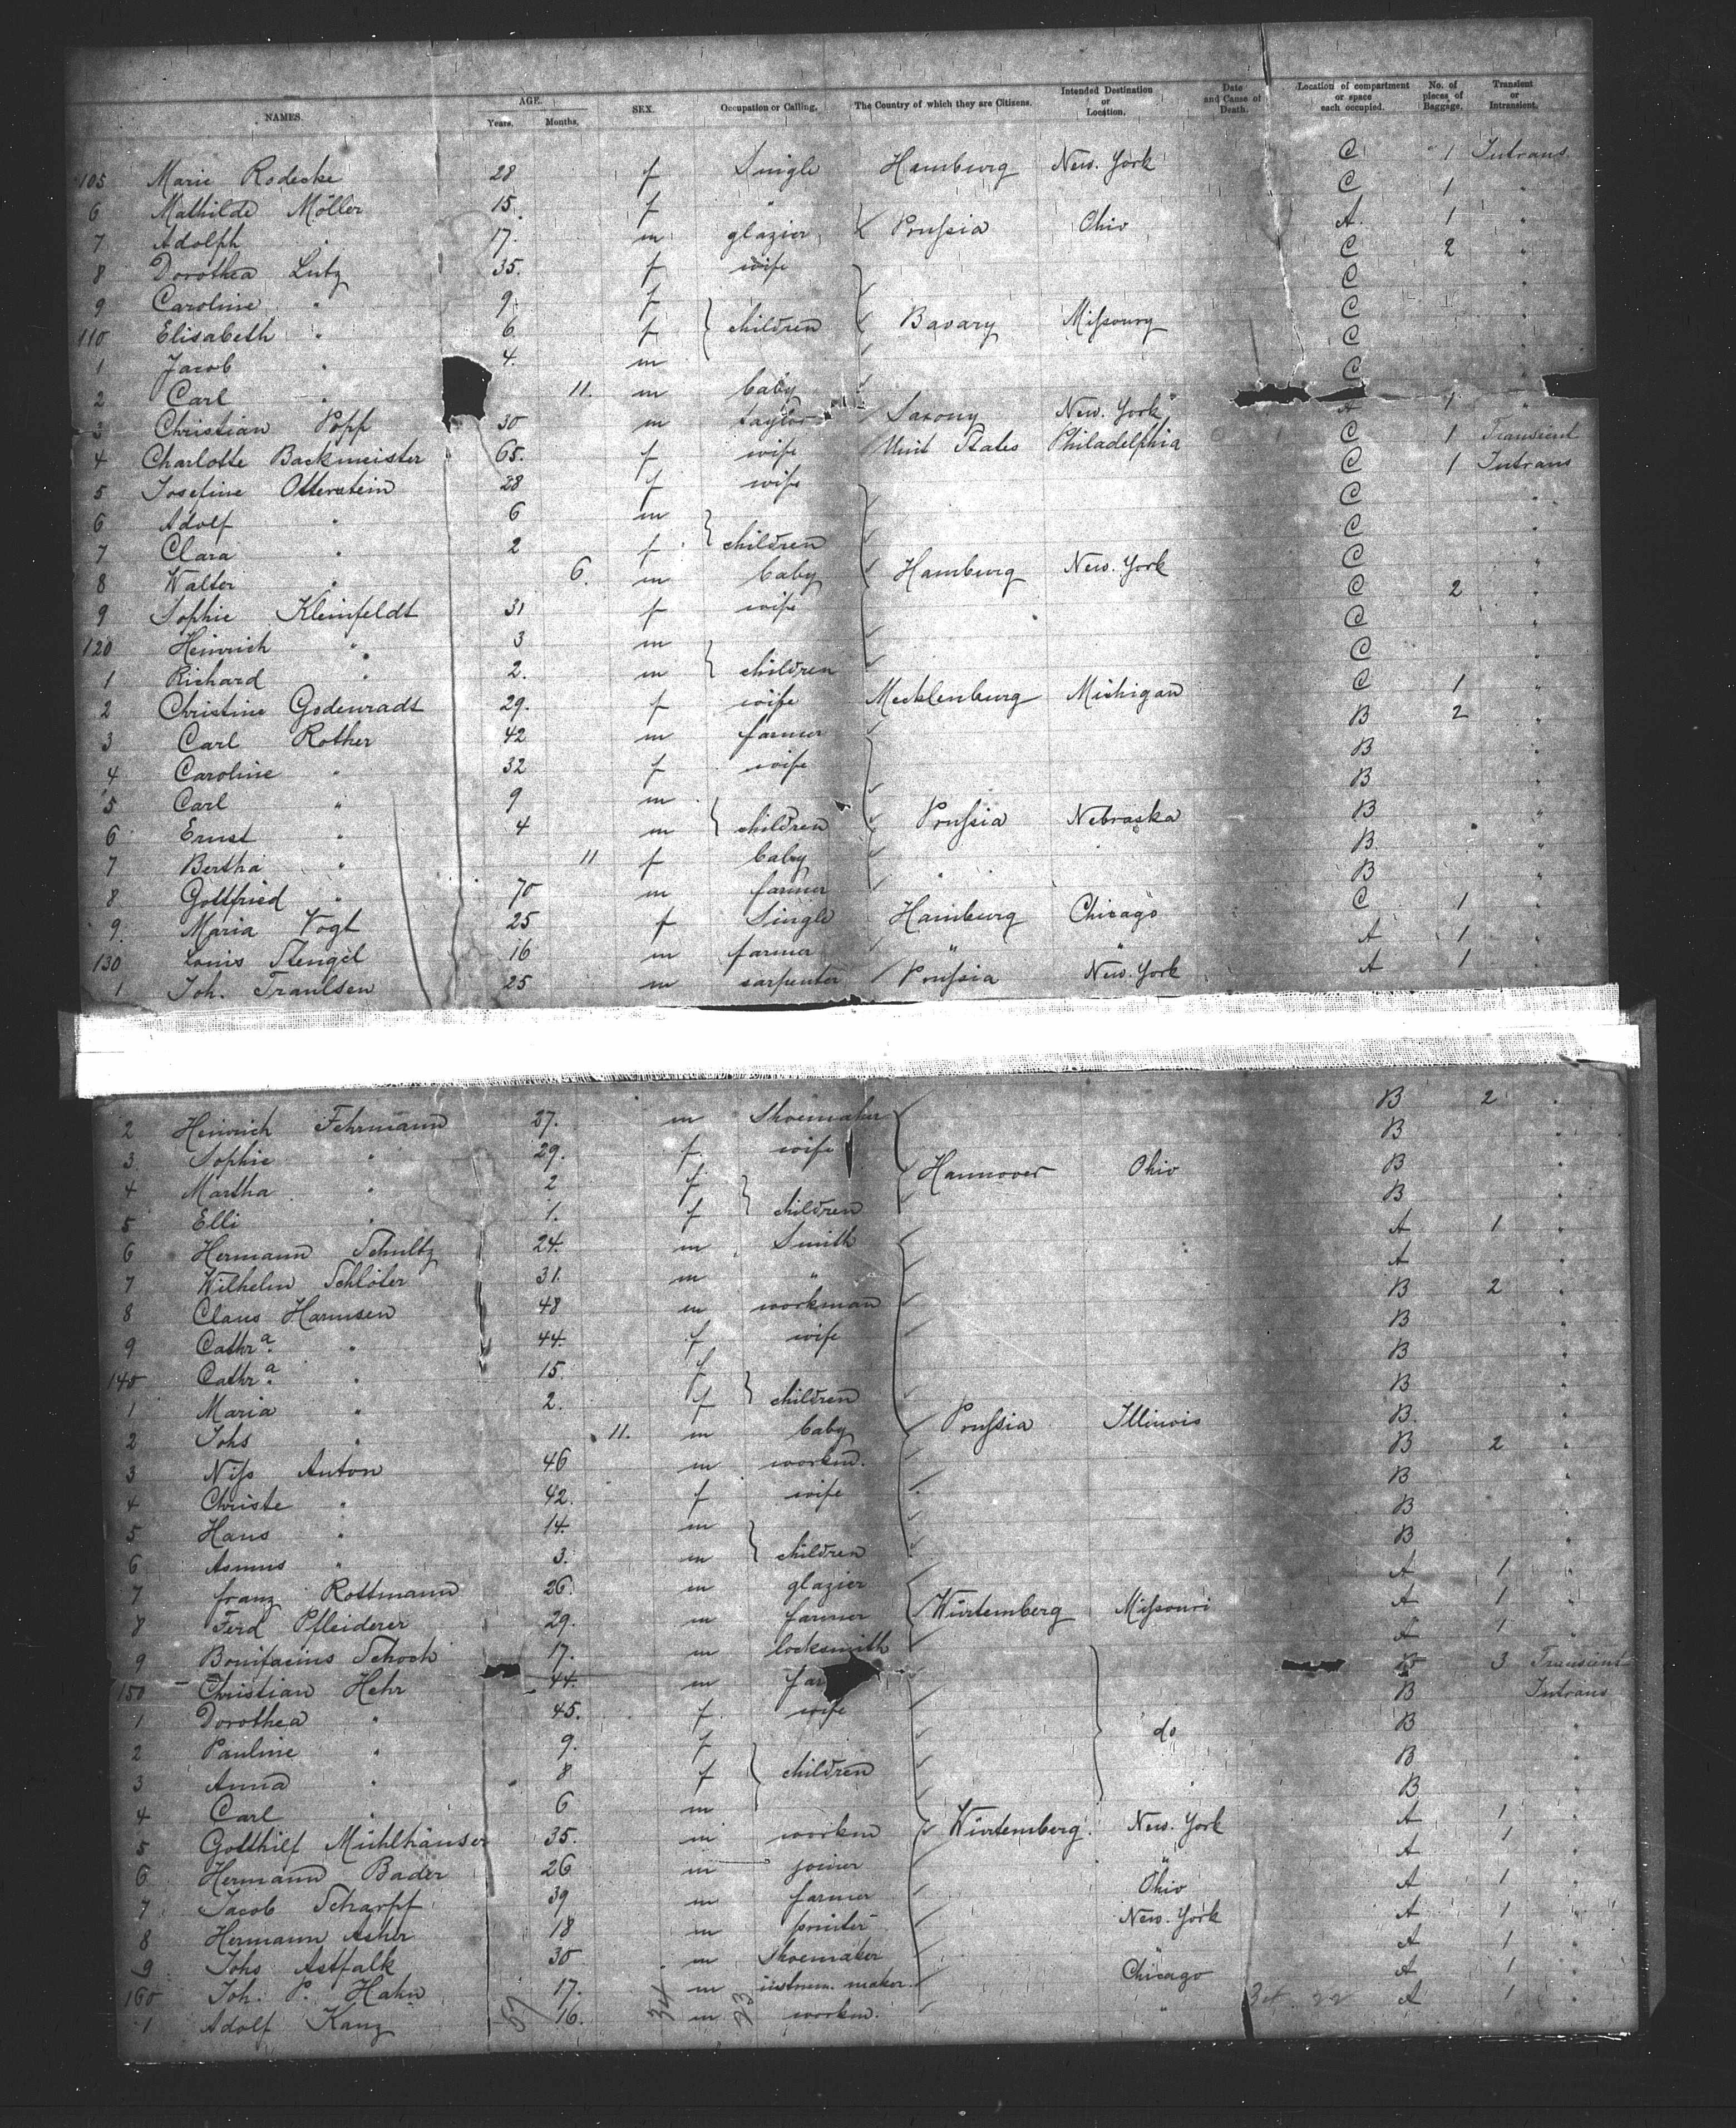 NAMES. AGE. Years. Months. SEX. Occupation or Calling. The Country of which they are Citizens. Intended Destination or Location. Date and Cause of Death. Location of compartment or space each occupied. No. of pieces of Baggage. Transient or Intransient.
105 Marie Rodecke 28 f Single Hamburg New. York C 1 Intrans
6 Mathilde Möller 15. f " C 1 "
7 Adolph " 17. m glazier Prussia Ohio A. 1 "
8 Dorothea Lutz 35. f wife C 2 "
9 Caroline " 9. f C "
110 Elisabeth " 6 f children Bavary Missoury C "
1 Jacob " 4. m C "
2 Carl " 11. m baby C "
3 Christian Popp 30 m taylor Saxony New. York A 1 "
4 Charlotte Backmeister 65. f wife Unit States Philadelphia C 1 Transient
5 Josefine Otterstein 28 f wife C 1 Intrans
6 Adolf " 6 m C "
7 Clara " 2 f children C "
8 Walter " 6. m baby Hamburg New. York C "
9 Sophie Kleinfeldt 31 f wife C 2 "
120 Heinrich " 3 m C "
1 Richard " 2. m children C "
2 Christine Godenradt 29. f wife Mecklenburg Michigan C 1 "
3 Carl Rother 42 m farmer B 2 "
4 Caroline " 32 f wife B "
5 Carl " 9 m B "
6 Ernst " 4 m children Prussia Nebraska B "
7 Bertha " 11 f baby B "
8 Gottfried " 70 m farmer B "
9. Maria Vogt 25 f Single Hamburg Chicago C 1 "
130 Louis Stengel 16 m farmer " " A 1 "
1 Joh. Traulsen 25 m carpenter Prussia New. York A 1
2 Heinrich Fehrmann 37. m Shoemaker B 2 "
3. Sophie " 29. f. wife B "
4 Martha " 2 f Hannover Ohio B "
5 Elli " 1. f children B "
6 Hermann Schultz 24. m Smith A 1 "
7 Wilhelm Schlöter 31. m " A "
8 Claus Harmsen 48 m workman B 2 "
9 Cathra. " 44. f wife B
140 Cathra. " 15. f B "
1 Maria " 2. f children B
2 Johs " 11. m baby Prussia Illinois B. "
3 Niss Anton 46 m workm. B 2 "
4 Christe " 42. f wife B "
5 Hans " 14. m B "
6 Asmus " 3. m children B "
7 Franz Rottmann 26. m glazier A 1 "
8 Ferd Pfleiderer 29. m farmer Würtemberg Missouri A 1 "
9 Bonifacius Schoch 17. m locksmith A 1 "
150 Christian Hehr 44. m far B 3 Transient
1 Dorothea " 45. f. wife B Intrans
2 Pauline " 9. f do B "
3 Anna " 8 f children B "
4 Carl " 6 m B "
5 Gotthilf Mühlhäuser 35. m workm Würtemberg. New. York A 1 "
6 Hermann Bader 26 m joiner " A 1
7 Jacob Scharpf 39 m farmer Ohio A 1 "
8 Hermann Asher 18 m printer New. York A 1 "
9 Johs Astfalk 30 m Shoemaker " A 1 "
160 Joh. P. Hahn 17. m instrum. maker. Chicago A 1 "
1 Adolf Kanz 16. m workm. " A 1 "
57 34 23